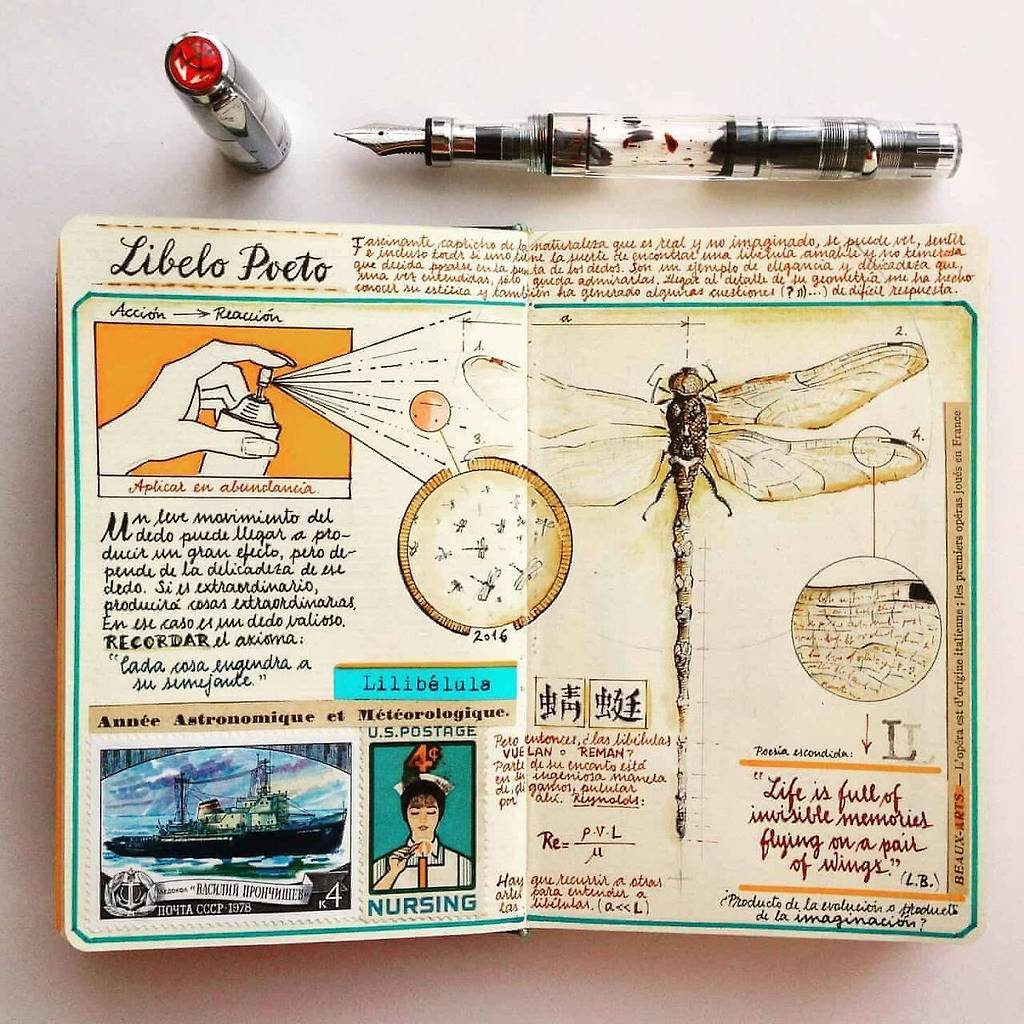 Libelo Poeto
Fascinante capricho de la naturaleza que es real y no imaginado, se puede ver, sentir
e incluso tocar si uno tiene la suerte de encontrar una libélula amable y no temerosa
que decida posarse en la punta de los dedos. Son un ejemplo de elegancia y delicadeza que,
una vez entendidas, solo queda admirarlas. Llegar al detalle de su geometría me ha hecho
conocer su estética y también ha generado algunas cuestiones (?))...) de difícil respuesta.
Acción → Reacción
Aplicar en abundancia.
a
1.
2.
3.
4.
Un leve movimiento del
dedo puede llegar a pro-
ducir un gran efecto, pero de-
pende de la delicadeza de ese
dedo. Si es extraordinario,
producirá cosas extraordinarias.
En ese caso es un dedo valioso.
RECORDAR el axioma:
"Cada cosa engendra a
su semejante."
2016
Lilibélula
Année Astronomique et Météorologique.
ЛЕДОКОЛ "ВАСИЛИЙ ПРОНЧИЩЕВ"
ПОЧТА СССР·1978
К4
U.S. POSTAGE
4¢
NURSING
蜻 蜓
Pero entonces, ¿las libélulas
VUELAN O REMAN?
Parte de su encanto está
en su ingeniosa manera
de, digamos, pulular
por ahí. Reynolds:
Re= ρ·V·L
μ
Hay que recurrir a otras
artes para entender a
las libélulas. (a<<L)
BEAUX-ARTS. — L'opéra est d'origine italienne ; les premiers opéras joués en France
Poesía escondida: ↓ L
"Life is full of
invisible memories
flying on a pair
of wings."
(L.B.)
¿Producto de la evolución o producto
de la imaginación?